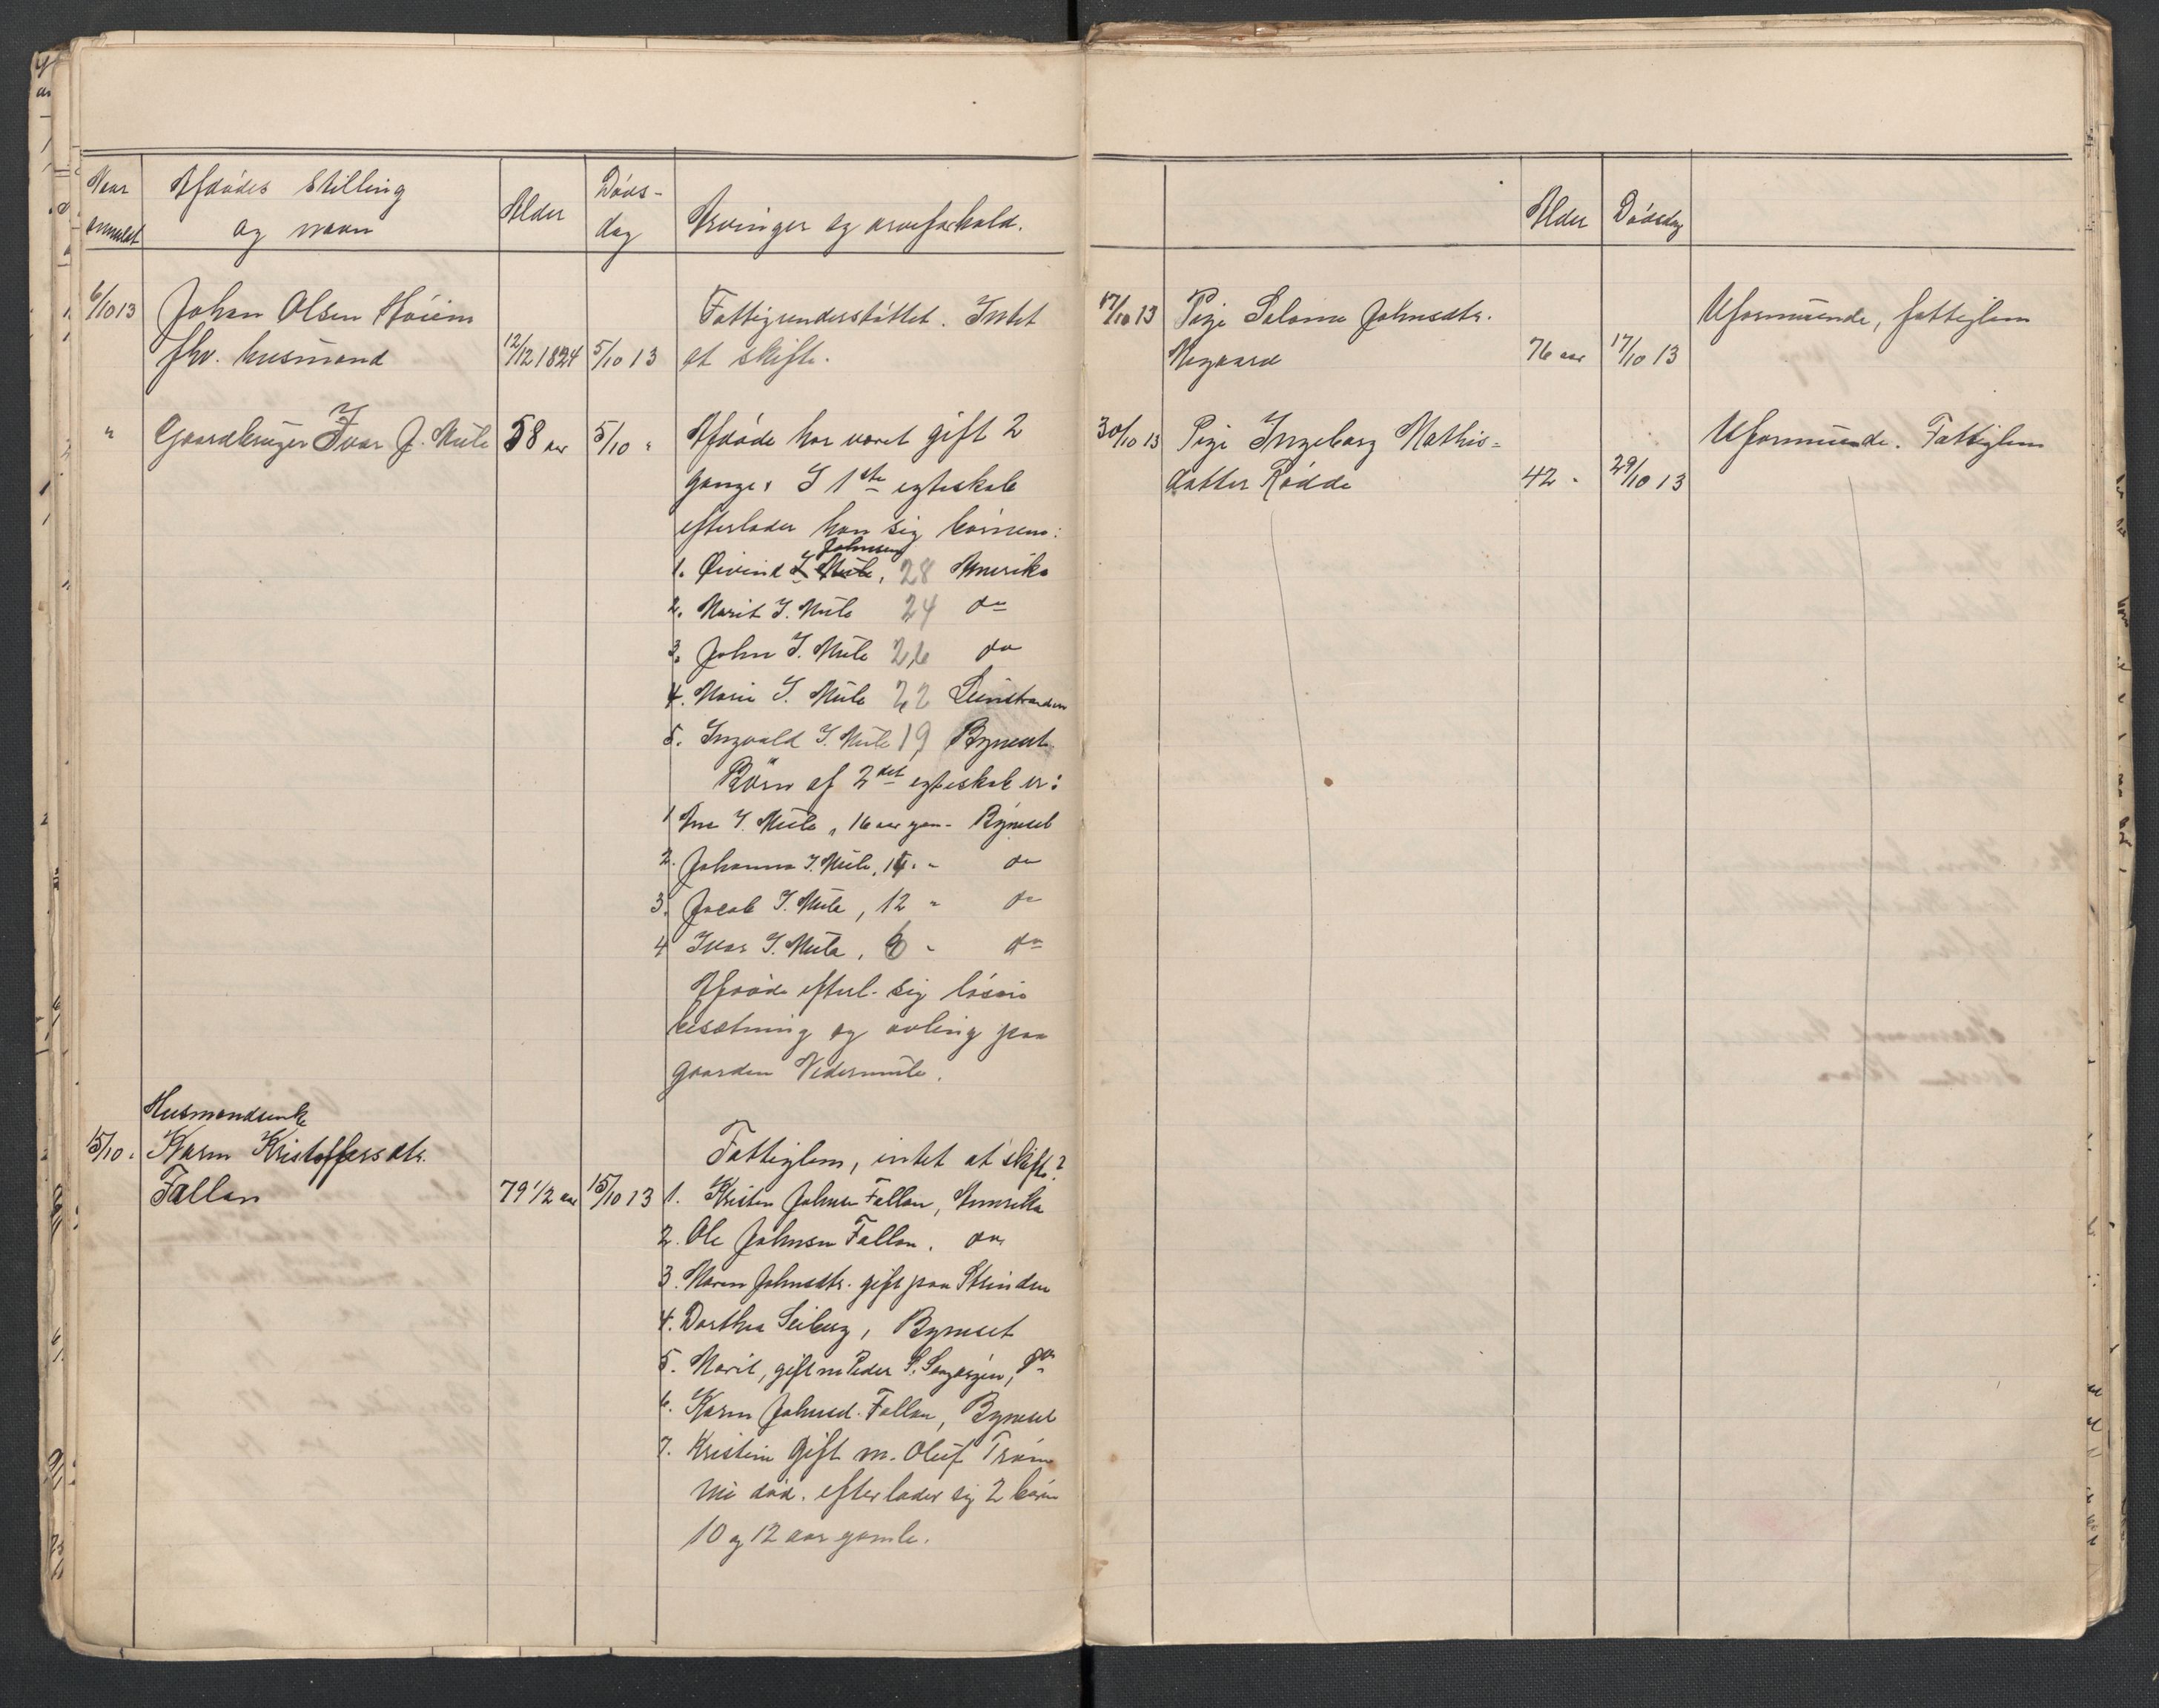 Naar anmeldt
Afdødes stilling
og navn
Alder
Døds-
dag
Arvinger og arveforhold.
6/10 13 Johan Olsen Høiem Fattigunderstøttet. Intet
fhv. husmand 12/12 1824 5/10 13 at skifte.
" Gaardbruger Ivar J. Mule 58 aar 5/10 " Afdøde har været gift 2
gange. I 1ste egteskab
efterlader han sig børnene:
Johnsen
1. Øivind I. Mule, 28 Amerika
2. Marit I. Mule 24 do
3. John I. Mule 26 do
4. Marie I. Mule 22 Leinstranden
5. Ingvald I. Mule 19 Bynesset
Børn af 2det egteskab er:
1 I. Mule, 16 aar gam. Bynesset
2. Johanna I. Mule, 14 " do
3. Jacob I. Mule, 12 " do
4 Ivar I. Mule, 6 " do
Afdøde efterl. sig løsøre
besætning og avling paa
gaarden Nedermule.
Husmandsenke
15/10 " Karen Kristoffersdtr. Fattiglem, intet at skifte?
Fallan 79 1/2 aar 15/10 13 1. Kristen Johnsen Fallan, Amerika
2. Ole Johnsen Fallan. do.
3. Maren Johnsdtr. gift paa Strinden
4. Dorthea Leiberg, Bynesset
5. Marit, gift m Peder S. do
6. Karen Johnsd. Fallan, Bynesset
7. Kristine gift m. Oluf
nu død. efterlader sig 2 børn
10 og 12 aar gamle.
Alder Dødsdag
17/10 13 Pige Salome Johnsdtr. Uformuende, fattiglem
Megaard 76 aar 17/10 13
30/10 13 Pige Ingeborg Mathis= Uformuende. Fattiglem
datter Rødde 42 " 29/10 13